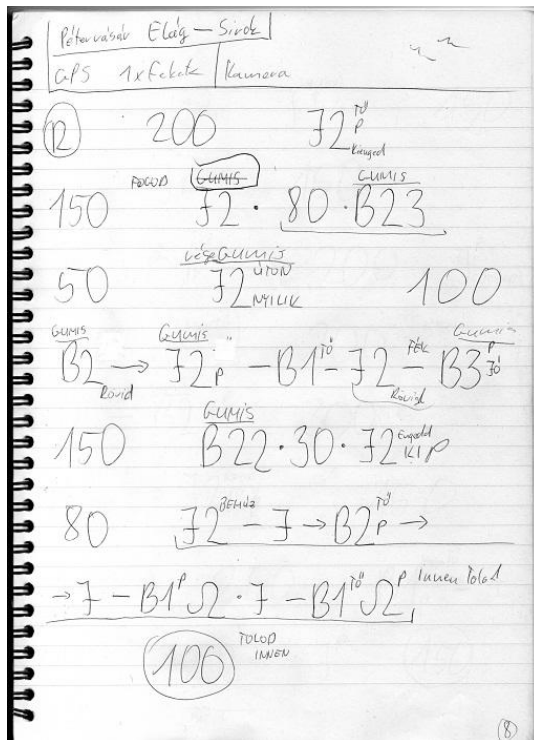 Pétervására Elág — Sirok
GPS 1xFekete Kamera
R 200 J2 TŐ P Kienged
150 FOGOD GUMIS J2 · 80 · GUMIS B23
50 vége Gumis J2 ÚTON NYILIK 100
GUMIS B2 Rövid → GUMIS J2 P – B1 TŐ – J2 Rövid – FÉK GUMIS B3 P TŐ
150 GUMIS B22 · 30 · J2 Engedd KI P
80 J2 BEHÚZ – J → B2 TŐ P →
→ J – B1 P Ω · J – B1 TŐ Ω P Innen Tolod
100 TOLOD INNEN
8